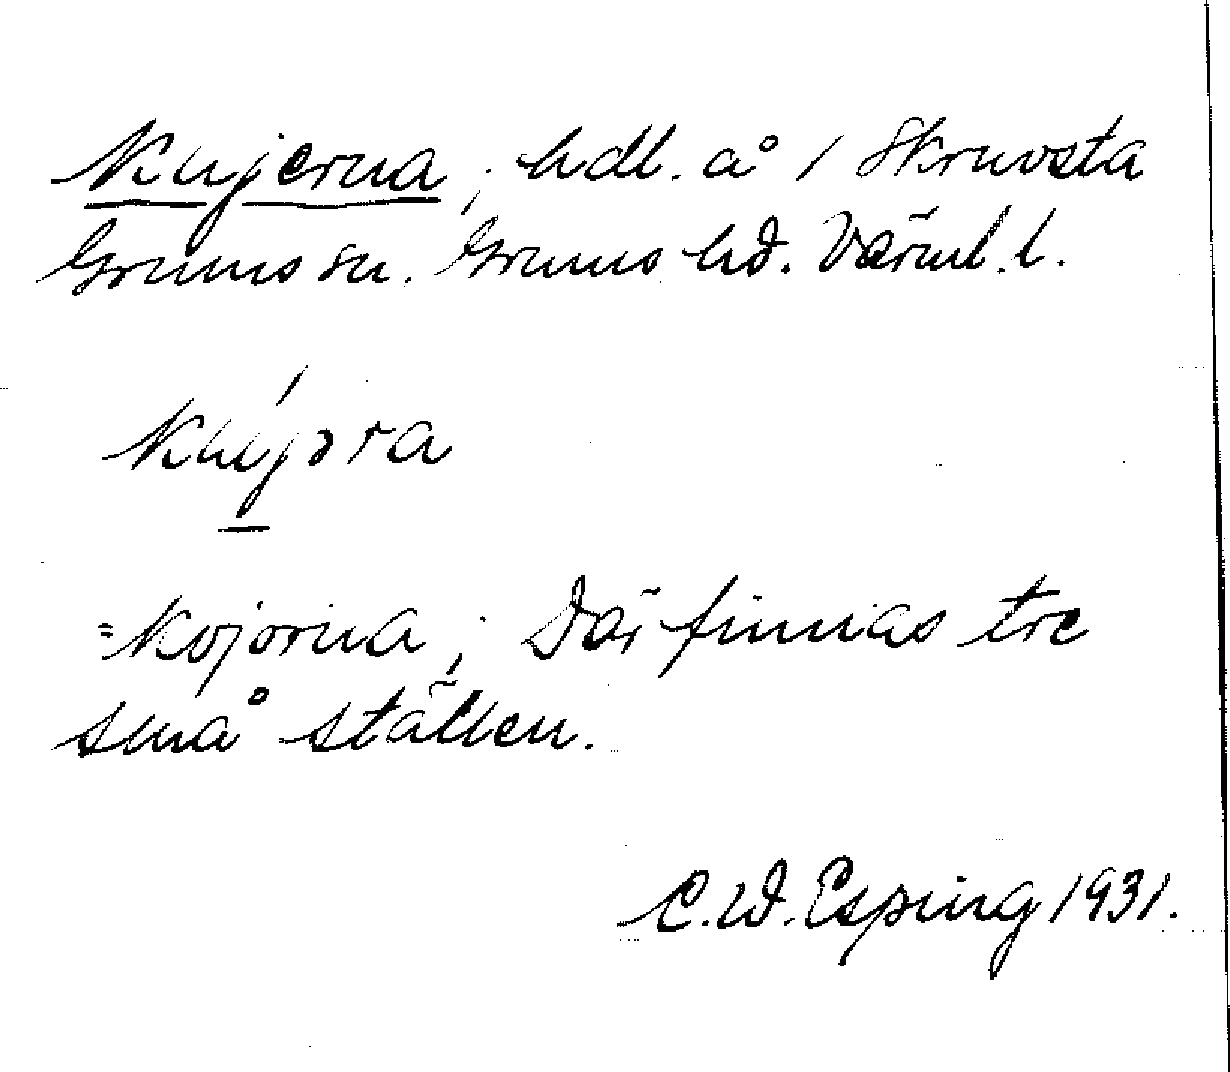 Kujerna, hdl. å 1 Skruvsta
Grums sn. Grums hd. Värml. l.
Kujəra
=Kojorna; Där finnas tre
små ställen.
C.W. Esping 1931.